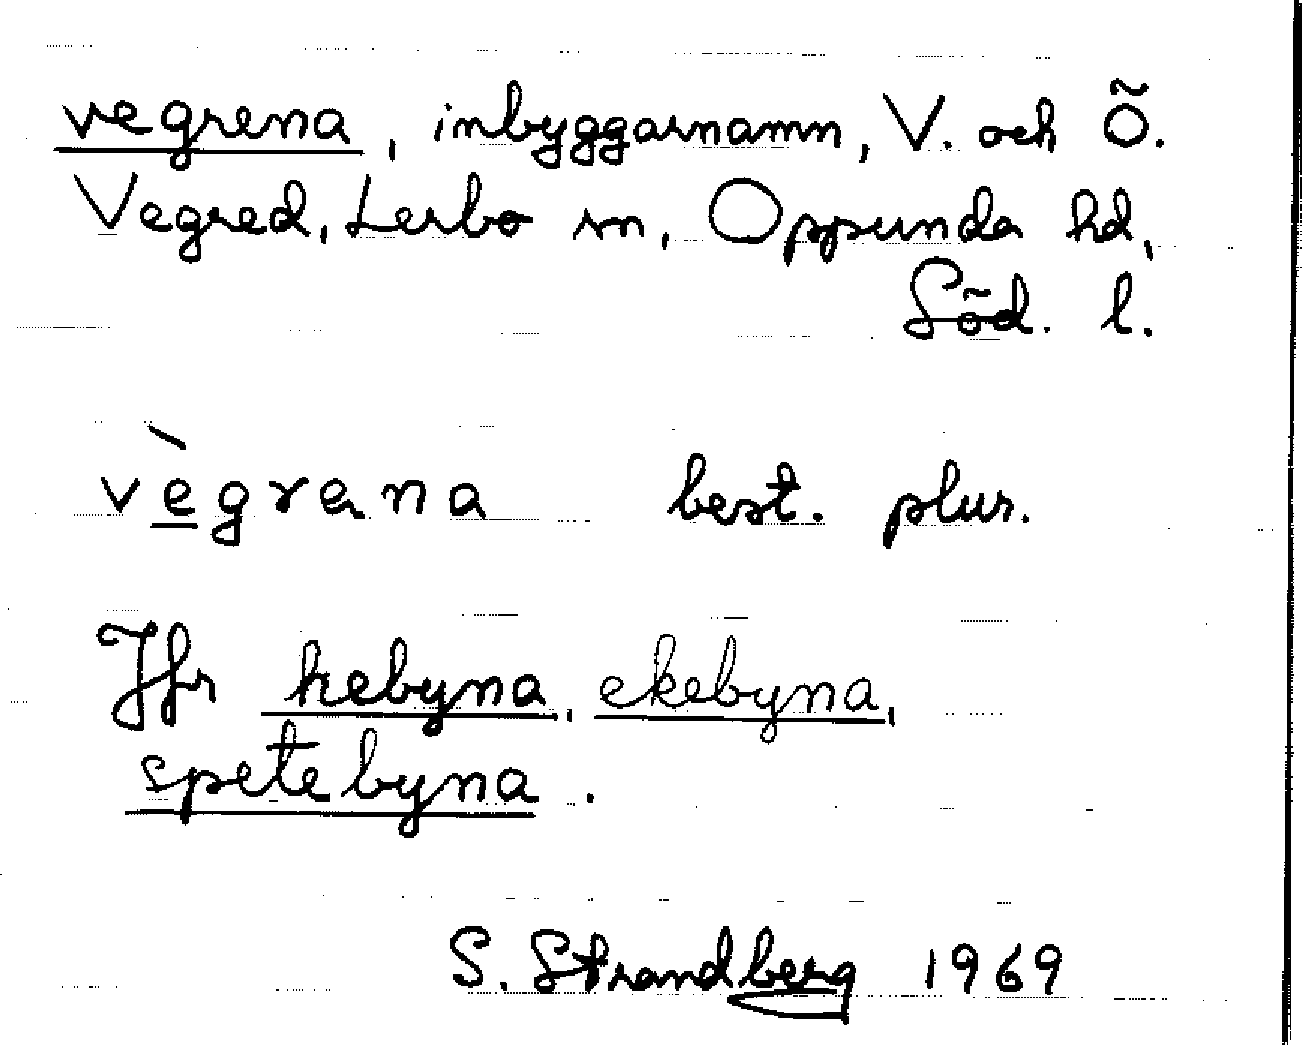 vegrena, inbyggarnamn, V. och Ö.
Vegred, Lerbo sn, Oppunda hd,
Söd. l.
vègrana best. plur.
Jfr hebyna, ekebyna,
spetebyna.
S. Strandberg 1969